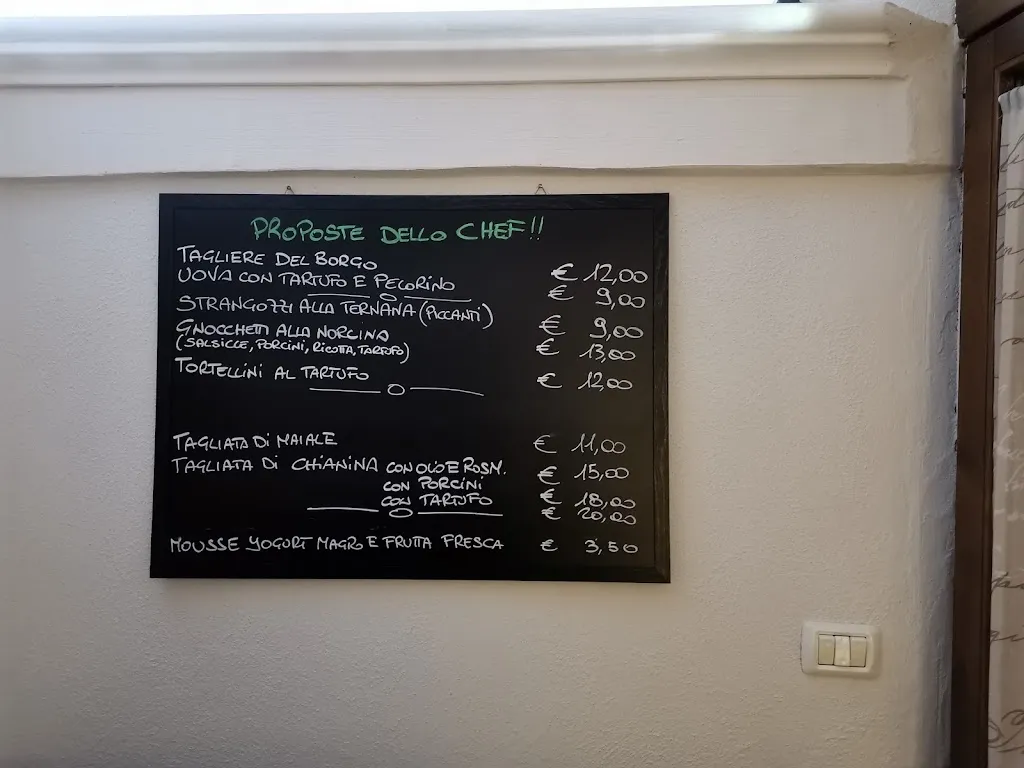 PROPOSTE DELLO CHEF!!
TAGLIERE DEL BORGO € 12,00
UOVA CON TARTUFO E PECORINO € 9,00
STRANGOZZI ALLA TERNANA (PICCANTI) € 9,00
GNOCCHETTI ALLA NORCINA € 13,00
(SALSICCE, PORCINI, RICOTTA, TARTUFO)
TORTELLINI AL TARTUFO € 12,00
TAGLIATA DI MAIALE € 11,00
TAGLIATA DI CHIANINA CON OLIO E ROSM. € 15,00
CON PORCINI € 18,00
CON TARTUFO € 20,00
MOUSSE YOGURT MAGRO E FRUTTA FRESCA € 3,50